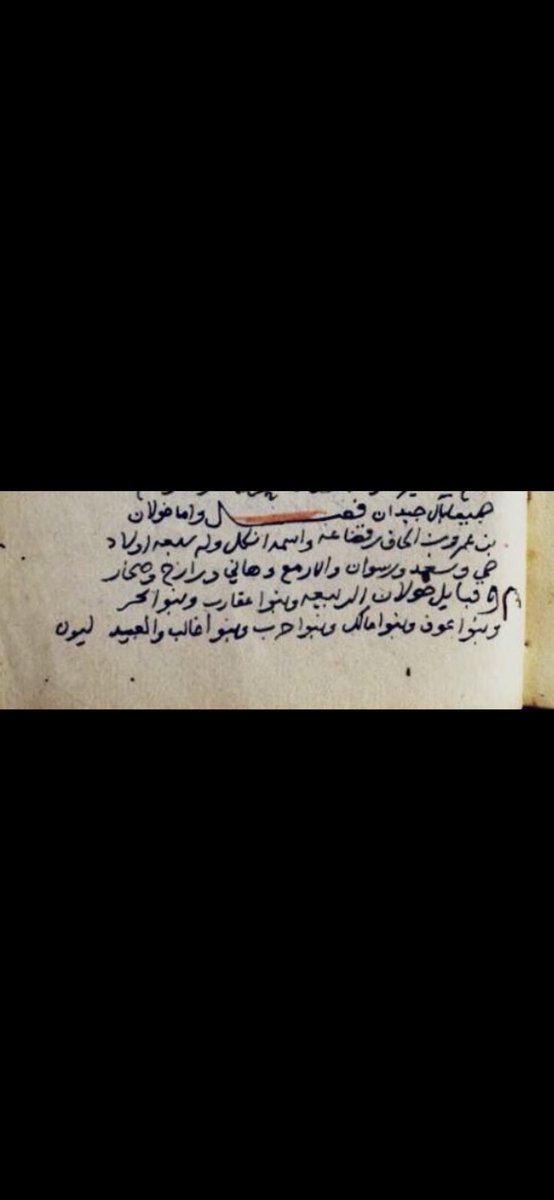 جميعا بال جيدان فصل واما خولان
بن عمرو بن الحاف بن قضاعه واسمه افكل وله سبعه اولاد
حي وسعد ورسوان والازمع وهاني ورازح وصحار
وقبايل خولان الربيعه وبنوا عقارب وبنوا بحر
وبنوا عوف وبنوا مالك وبنوا حرب وبنوا غالب والعبيد